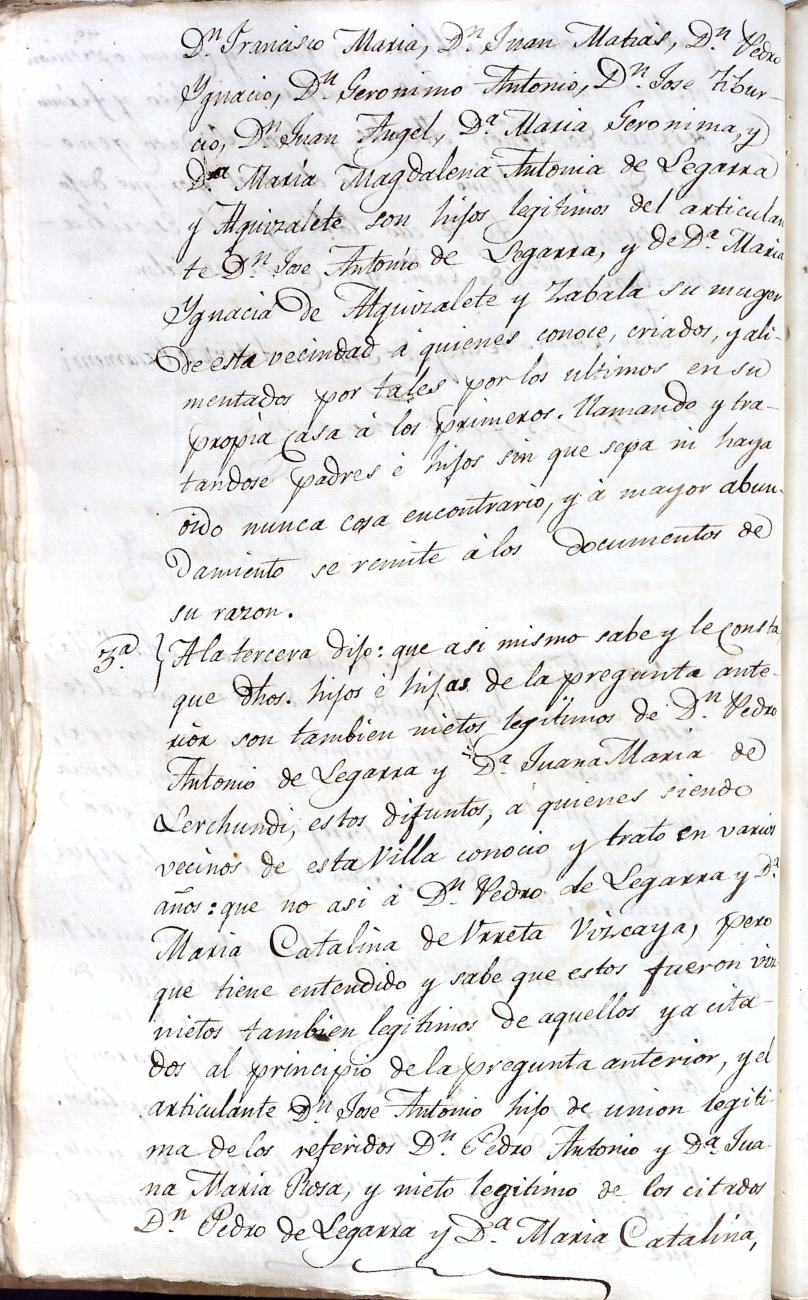 Dn. Francisco Maria, Dn. Juan Matias, Dn. Pedro
Ygnacio, Dn. Geronimo Antonio, Dn. Jose Tibur-
cio, Dn. Juan Angel, Da. Maria Geronima, y
Da. María Magdalena Antonia de Legarra
y Alquizalete son hijos legitimos del articulan
te Dn. Jose Antonio de Legarra, y de Da. Maria
Ygnacia de Alquizalete y Zabala su muger
de esta vecindad á quienes conoce, criados, y ali-
mentados por tales por los ultimos en su
propia casa á los primeros. llamando y tra-
tandose padres é hijos sin que sepa ni haya
oido nunca cosa encontrario, y á mayor abun-
damiento se remite álos documentos de
su razon.
3a. } Ala tercera dijo: que asi mismo sabe y le consta,
que dhos. hijos é hijas de la pregunta ante-
rior son tambien nietos legitimos de Dn. Pedro
Antonio de Legarra y Da. Juana Maria de
Lerchundi, estos difuntos, á quienes siendo
vecinos de esta Villa conocio y trato en varios
años: que no asi á Dn. Pedro de Legarra y Da.
Maria Catalina de Urreta Vizcaya, pero
que tiene entendido y sabe que estos fueron viz-
nietos tambien legitimos de aquellos ya cita-
dos al principio de la pregunta anterior, y el
articulante Dn. Jose Antonio hijo de union legiti-
ma de los referidos Dn. Pedro Antonio y Da. Jua-
na Maria Rosa, y nieto legitimo de los citados
Dn. Pedro de Legarra y Da. Maria Catalina,